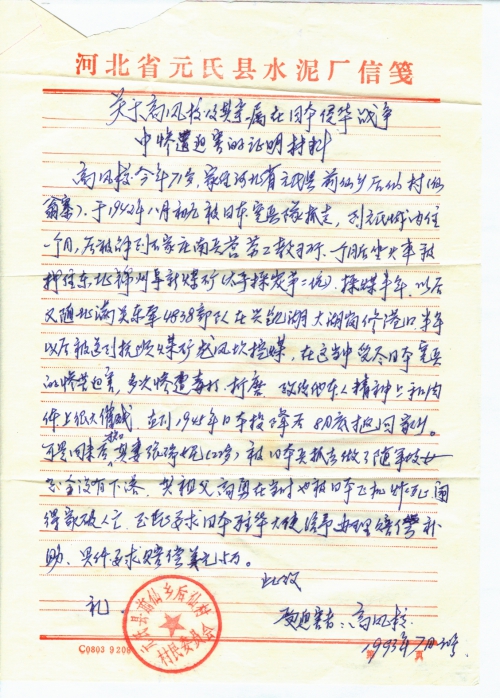 河北省元氏县水泥厂信笺
关于高凤枝及其亲属在日本侵华战争
中惨遭迫害的证明材料
高凤枝今年71岁，家住河北省元氏县前仙乡后仙村（仙
翁寨）、于1942年八月初左被日本宪兵队抓走，到元氏城内住
一个月，后被押到石家庄南兵营劳工教习所、一个月后坐火车被
押往东北锦州阜新煤矿（太平採炭第二坑）．採煤半年．以后
又随北满关东军4838部队在兴凯湖大湖岗修港口半年
以后被送到抚顺煤矿龙凤坎挖煤，在这当中受尽日本宪兵
的惨苦迫害，多次惨遭毒打、折磨 致使他本人精神上和肉
体上很大催残 直到1945年日本投降后8月底 回家乡。
可是回来后 其妻张 妮（22岁）被日本兵抓去做了随军妓女
至今没有下落．其祖父高勇在当时也被日本飞机炸死 闹
得家破人亡 至此要求日本驻华大使给予办理赔偿补
助、具体要求赔偿美元5万。
此致
礼． 受迫害者：高凤枝
元氏县前仙乡后仙村
村民委员会
1993年7月
C0803 9206 第 页